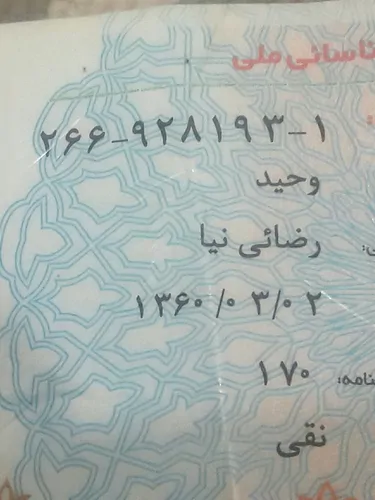 ناسائی ملی
۲۶۶-۹۲۸۱۹۳-۱
وحید
رضائی نیا
۱۳۶۰/۰۳/۰۲
نامه: ۱۷۰
نقی